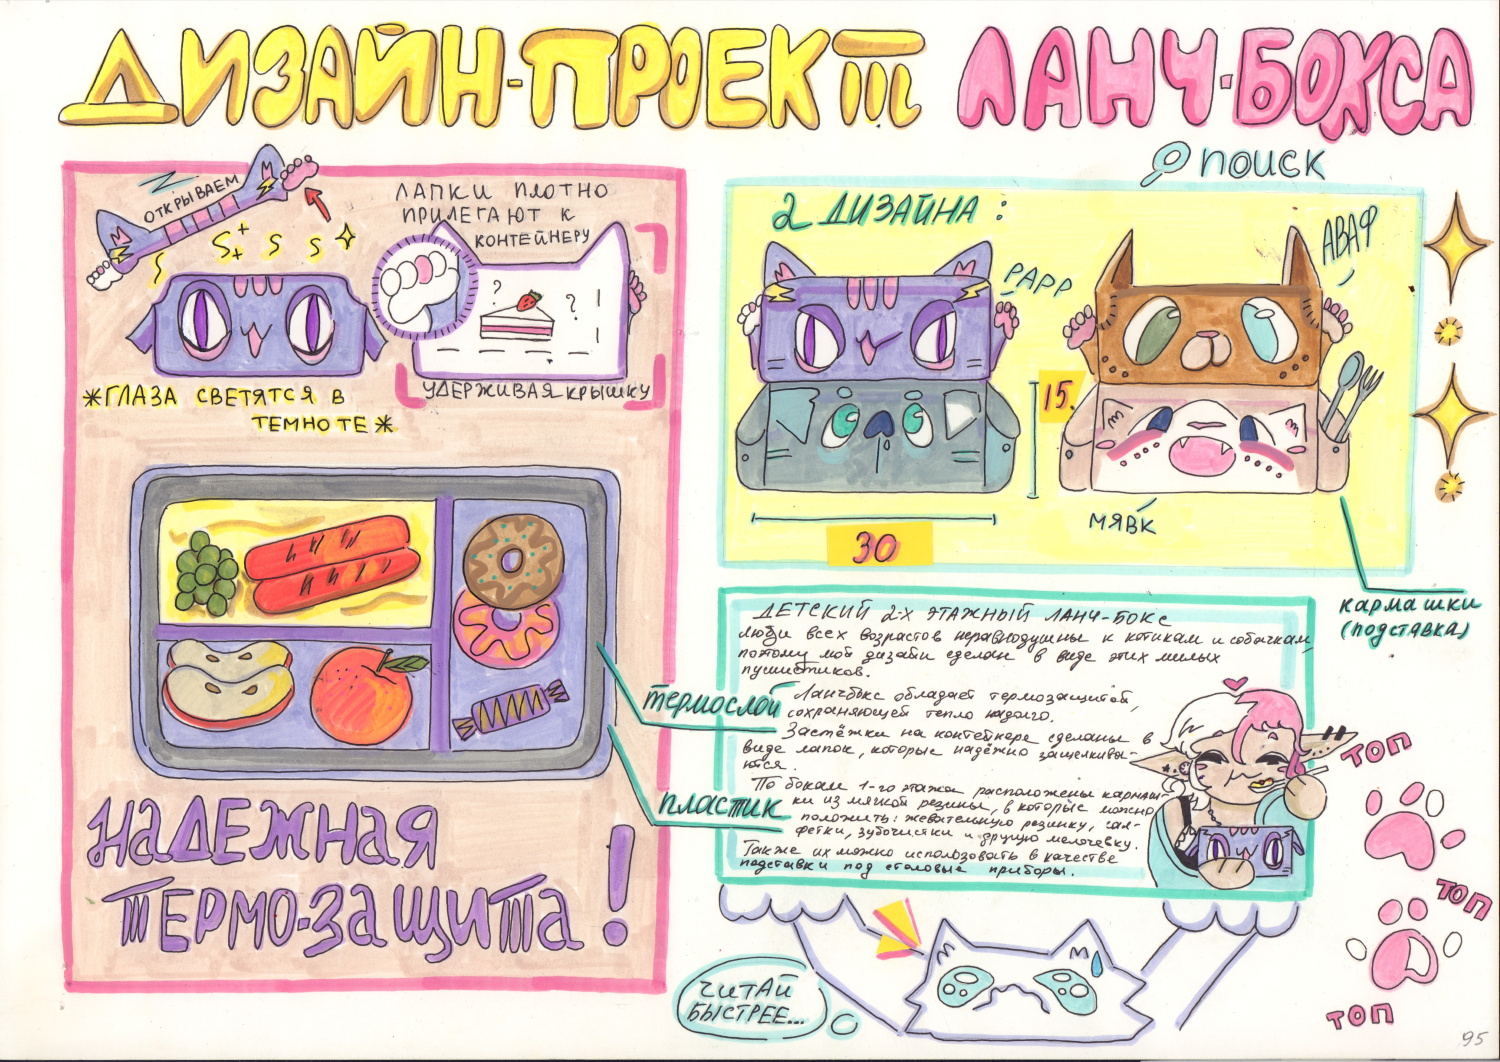 ДИЗАЙН-ПРОЕКТ ЛАНЧ-БОКСА
ОТКРЫВАЕМ
ЛАПКИ ПЛОТНО
ПРИЛЕГАЮТ К
КОНТЕЙНЕРУ
? ?
УДЕРЖИВАЯ КРЫШКУ
*ГЛАЗА СВЕТЯТСЯ В
ТЕМНОТЕ*
НАДЕЖНАЯ
ТЕРМО-ЗАЩИТА!
термослой
пластик
ПОИСК
2 ДИЗАЙНА:
РАРР
АВАФ
15.
30
МЯВК
кармашки
(подставка)
ДЕТСКИЙ 2-Х ЭТАЖНЫЙ ЛАНЧ-БОКС
люди всех возрастов неравнодушны к котикам и собачкам,
потому мой дизайн сделан в виде этих милых
пушистиков.
Ланчбокс обладает термозащитой,
сохраняющей тепло надолго.
Застёжки на контейнере сделаны в
виде лапок, которые надёжно защелкива-
ются.
По бокам 1-го этажа расположены кармаш-
ки из мягкой резины, в которые можно
положить: жевательную резинку, сал-
фетки, зубочистки и другую мелочевку.
Также их можно использовать в качестве
подставки под столовые приборы.
ТОП
ТОП
ТОП
ЧИТАЙ
БЫСТРЕЕ...
95